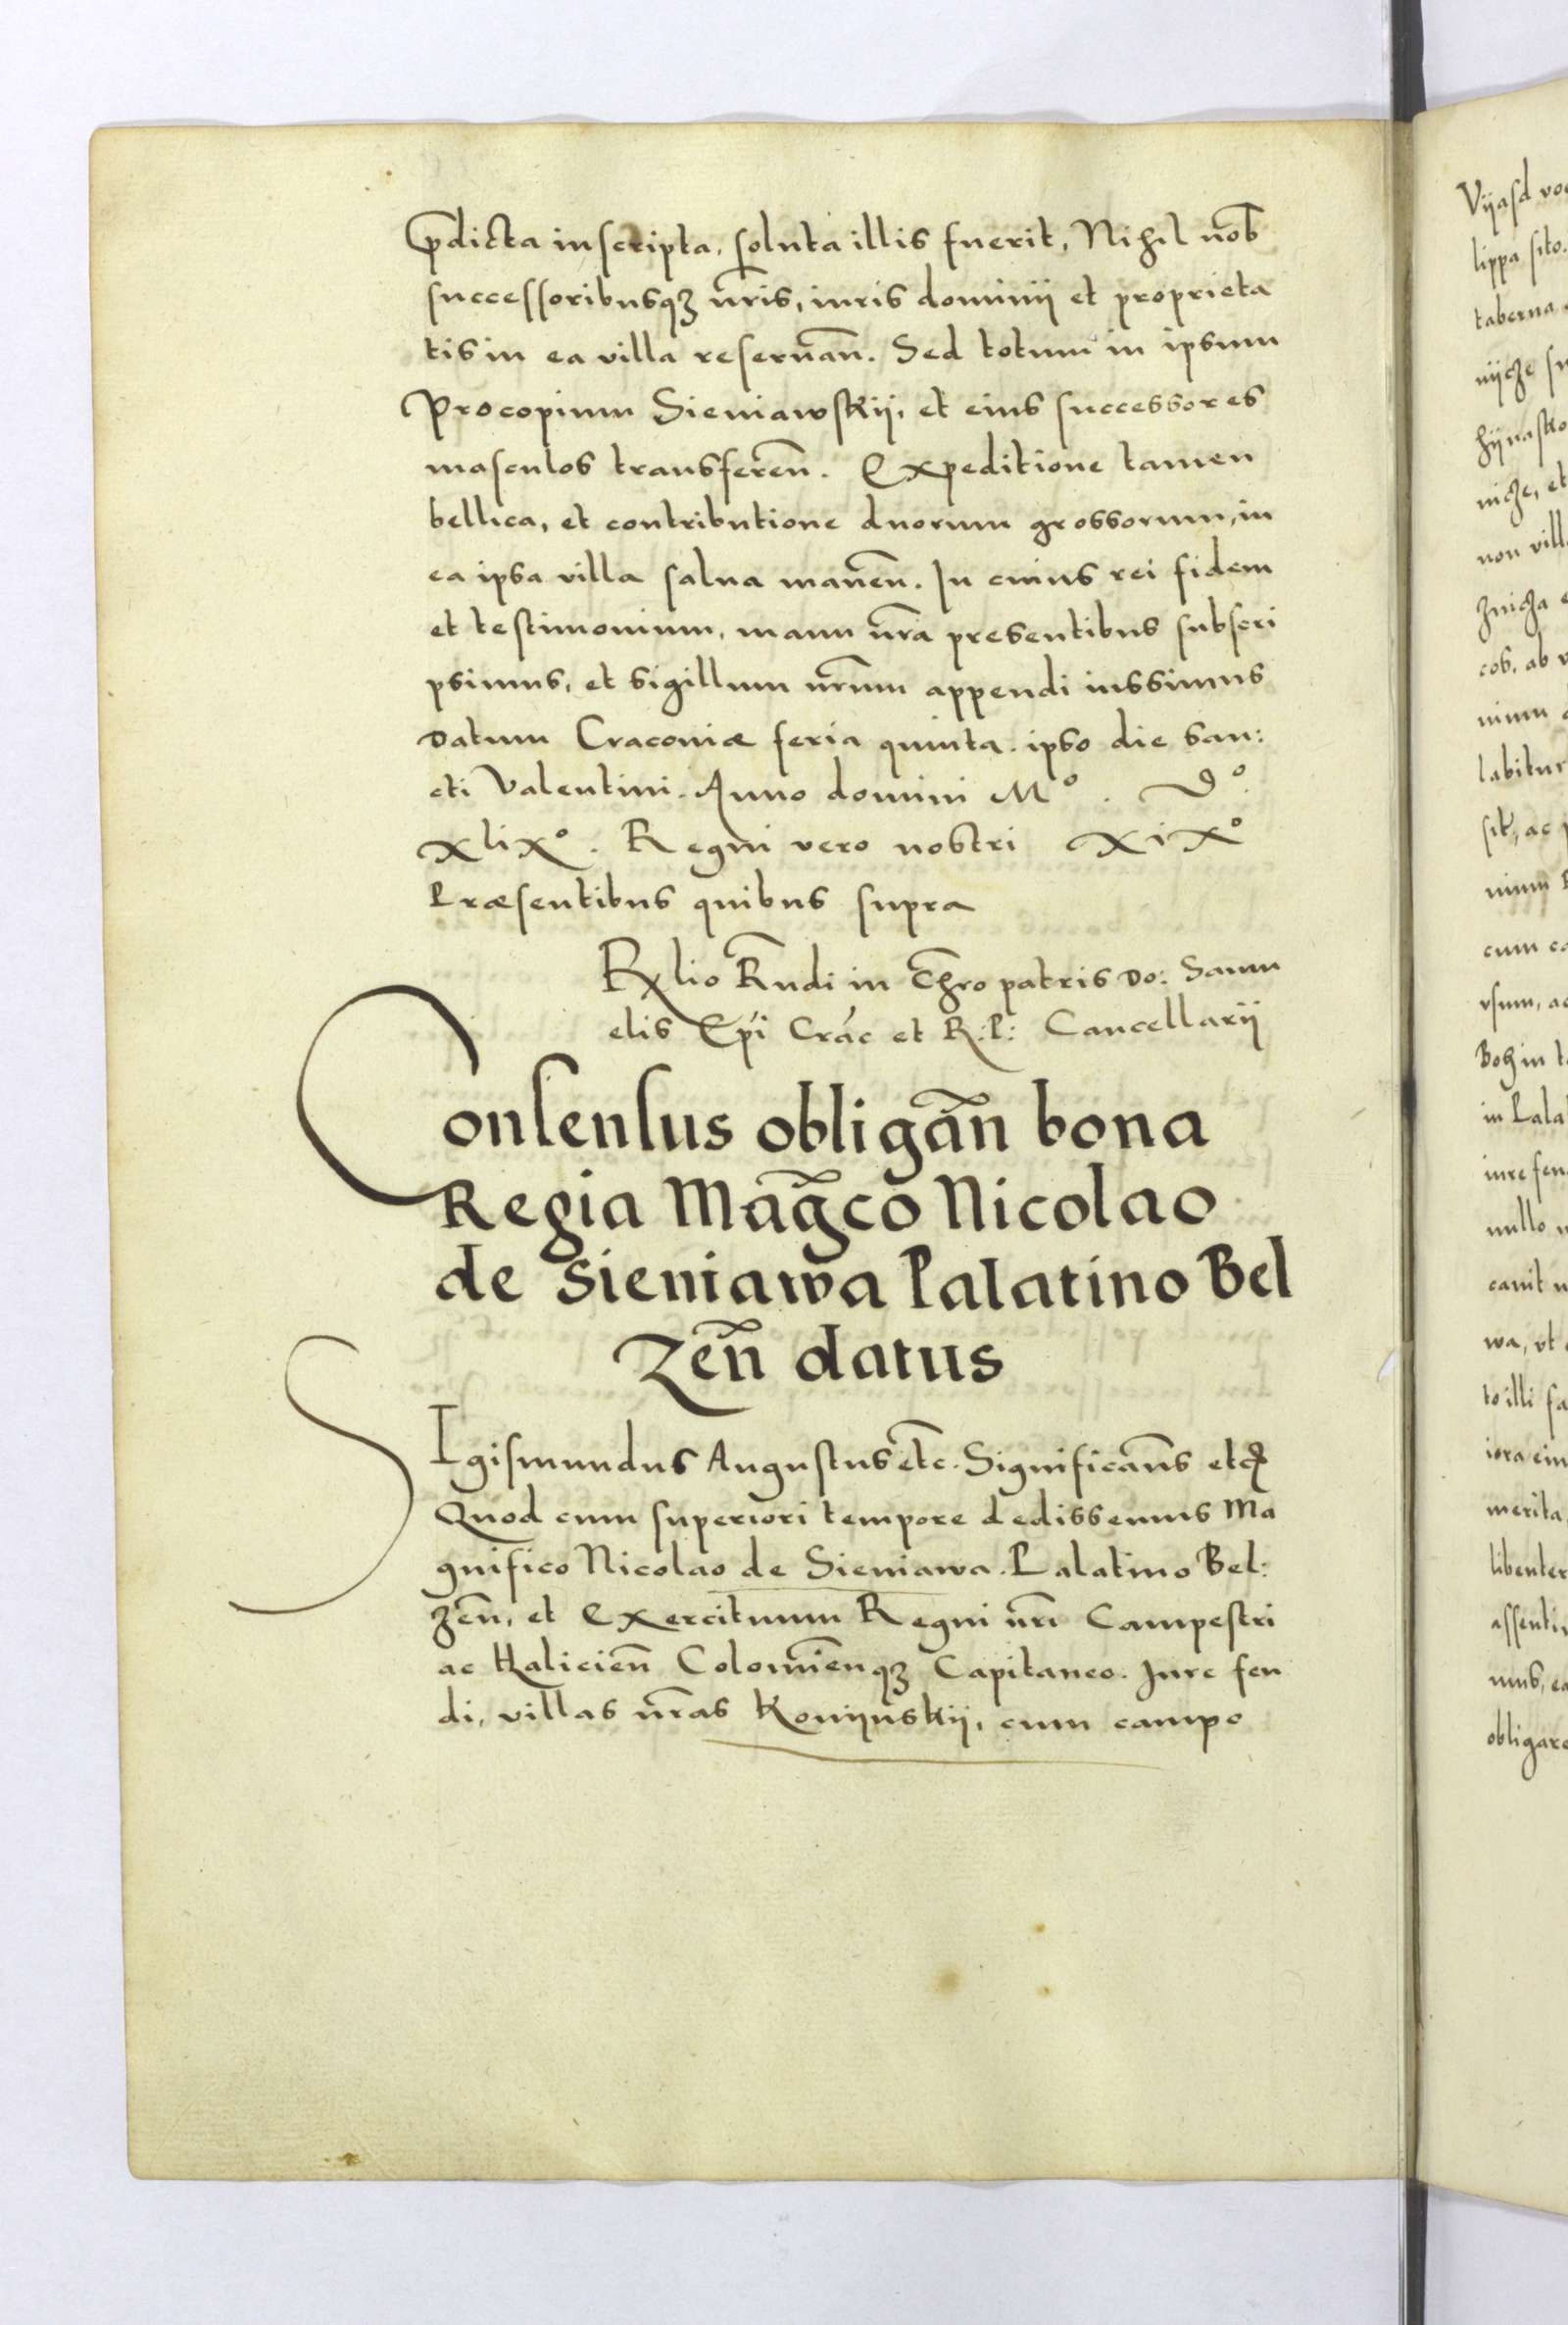 p̄dicta inscripta, soluta illis fuerit, Nihil nob̄
successoribusqꝫ n̄ris, iuris dominij et proprieta
tis in ea villa reseruan̄. Sed totum in ipsum
Procopium Sieniawskij, et eius successores
masculos transferen̄. Expeditione tamen
bellica, et contributione duorum grossorum, in
ea ipsa villa salua manen̄. In cuius rei fidem
et testimonium, manu n̄ra presentibus subscri
psimus, et sigillum n̄rum appendi iussimus
Datum Cracouiæ feria quinta. ipso die san:
cti Valentini. Anno domini Mº. Dº.
xlixº. Regni vero nostri xixº
Præsentibus quibus supra
Rxlio Rn̄di in Chr̄o patris Do: Samu
elis Ep̄i Crac̄ et R: P: Cancellarij
Consensus obligan̄ bona
Regia Mag̃co Nicolao
de Sieniawa Palatino Bel
zen̄ datus
SIgismundus Augustus etc̄. Significam̄s etcꝭ
Quod cum superiori tempore dedissemus Ma
gnifico Nicolao de Sieniawa. Palatino Bel:
zen̄, et Exercituum Regni n̄ri Campestri
ac Halicien̄ Colomien̄qꝫ Capitaneo. Jure feu
di, villas n̄ras Konijuskij, cum campo
Vijasd
lippa sito.
taberna
nijcze
nicze, et
non vill
znicza
cos. ab
labitur
sit, ac
cum
vsum, ac
Boh in
in Pala
iure feu
nullo
canit
wa, vt
to illi fa
merita
libenter
assenti
mus, ea
obligare